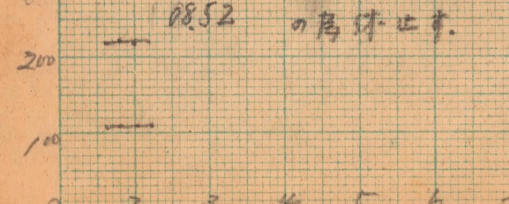 08.52 の為 球 止す.
200
100
0 2 3 4 5 6